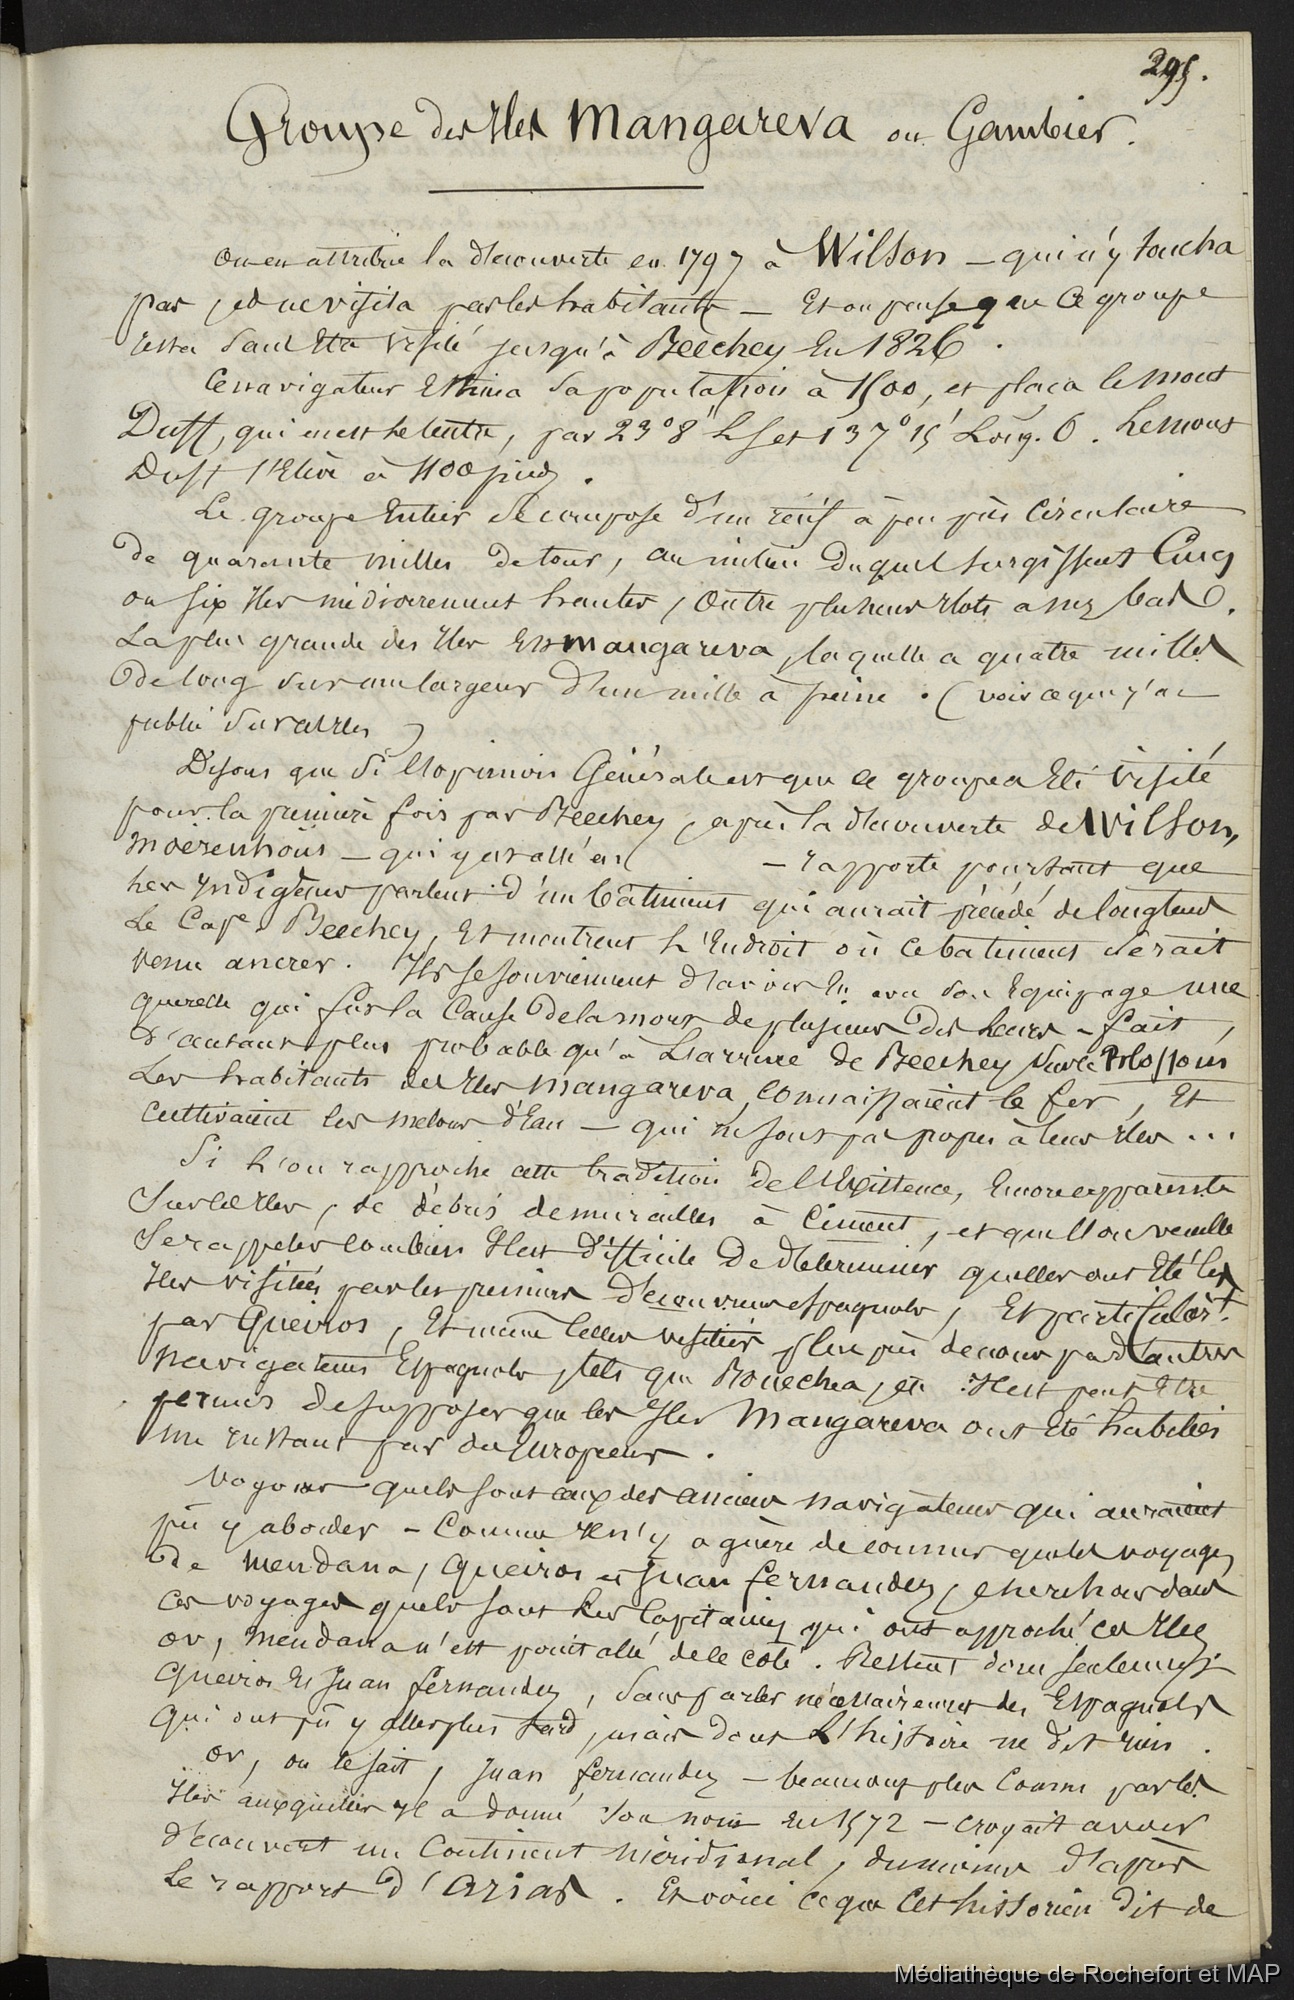 295.
Groupe des Iles Mangareva ou Gambier.
On en attribue la découverte en 1797 à Wilson – qui n'y toucha
pas, et ne visita pas les habitants – Et on pense que ce groupe
resta sans être visité jusqu'à Beechey En 1826.
Ce navigateur Estima sa population à 1500, et plaça le mont
Duff, qui en est le centre, par 23° 8' L S et 137° 15' Long. O. Le mont
Duff s'élève à 1100 pieds.
Le groupe Entier se compose d'un récif à peu près circulaire
de quarante milles de tour, au milieu duquel surgissent Cinq
ou six Iles médiocrement hautes, outre plusieurs Ilots assez bas.
La plus grande des Iles Est mangareva, laquelle a quatre milles
de long sur une largeur d'un mille à peine. (voir ce que j'ai
publié sur ces Iles)
Disons que si l'opinion Générale est que ce groupe a Eté visité
pour la première fois par Beechey, après la découverte de Wilson,
Moërenhoüt – qui y est allé en ( – rapporte pourtant que
les Indigènes parlent d'un bâtiment qui aurait précédé de longtems
Le Cape Beechey, Et montrent l'Endroit où ce batiment serait
venu ancrer. Ils se souviennent d'avoir Eu avec son Equipage une
querelle qui fut la Cause de la mort de plusieurs des leurs – fait,
d'autant plus probable qu'à L'arrivée de Beechey sur le Blossom
Les habitants des Iles mangareva, connaissaient le fer, Et
cultivaient les melons d'Eau – qui ne sont pas propres à leurs Iles...
Si l'on rapproche cette tradition de l'Existence, Encore apparente
Sur ces Iles, de débris de murailles à Ciment, et que l'on veuille
Se rappeler combien Il est difficile de déterminer quelles ont Eté les
Iles visitées par les premiers découvreurs espagnols, Et particulèrt.
par Queiros, Et même celles visitées plus près de nous par d'autres
navigateurs Espagnols, tels que Bouechea, etc. Il est peut Etre
permis de supposer que les Iles Mangareva ont Eté habitées
un Instant par des Européens.
Voyons quels sont ceux des anciens navigateurs qui auraient
pû y aborder – Comme Il n'y a guère de connus que les voyages
de Mendana, Queiros et Juan fernandez, cherchons dans
ces voyages quels sont les Capitaines qui ont approché ces Iles
or, Mendana n'est point allé de ce coté. Restent donc seulement
Quéiros Et Juan fernandez, sans parler nécessairement des Espagnols
qui ont pû y aller plus tard, mais dont L'histoire ne dit rien.
or, on le sait, Juan fernandez – beaucoup plus Connu par les
Iles auxquelles il a donné son nom En 1572 – croyait avoir
découvert un Continent méridional, du moins d'après
Le rapport d'Arias. Et voici ce que Cet historien dit de
Médiathèque de Rochefort et MAP